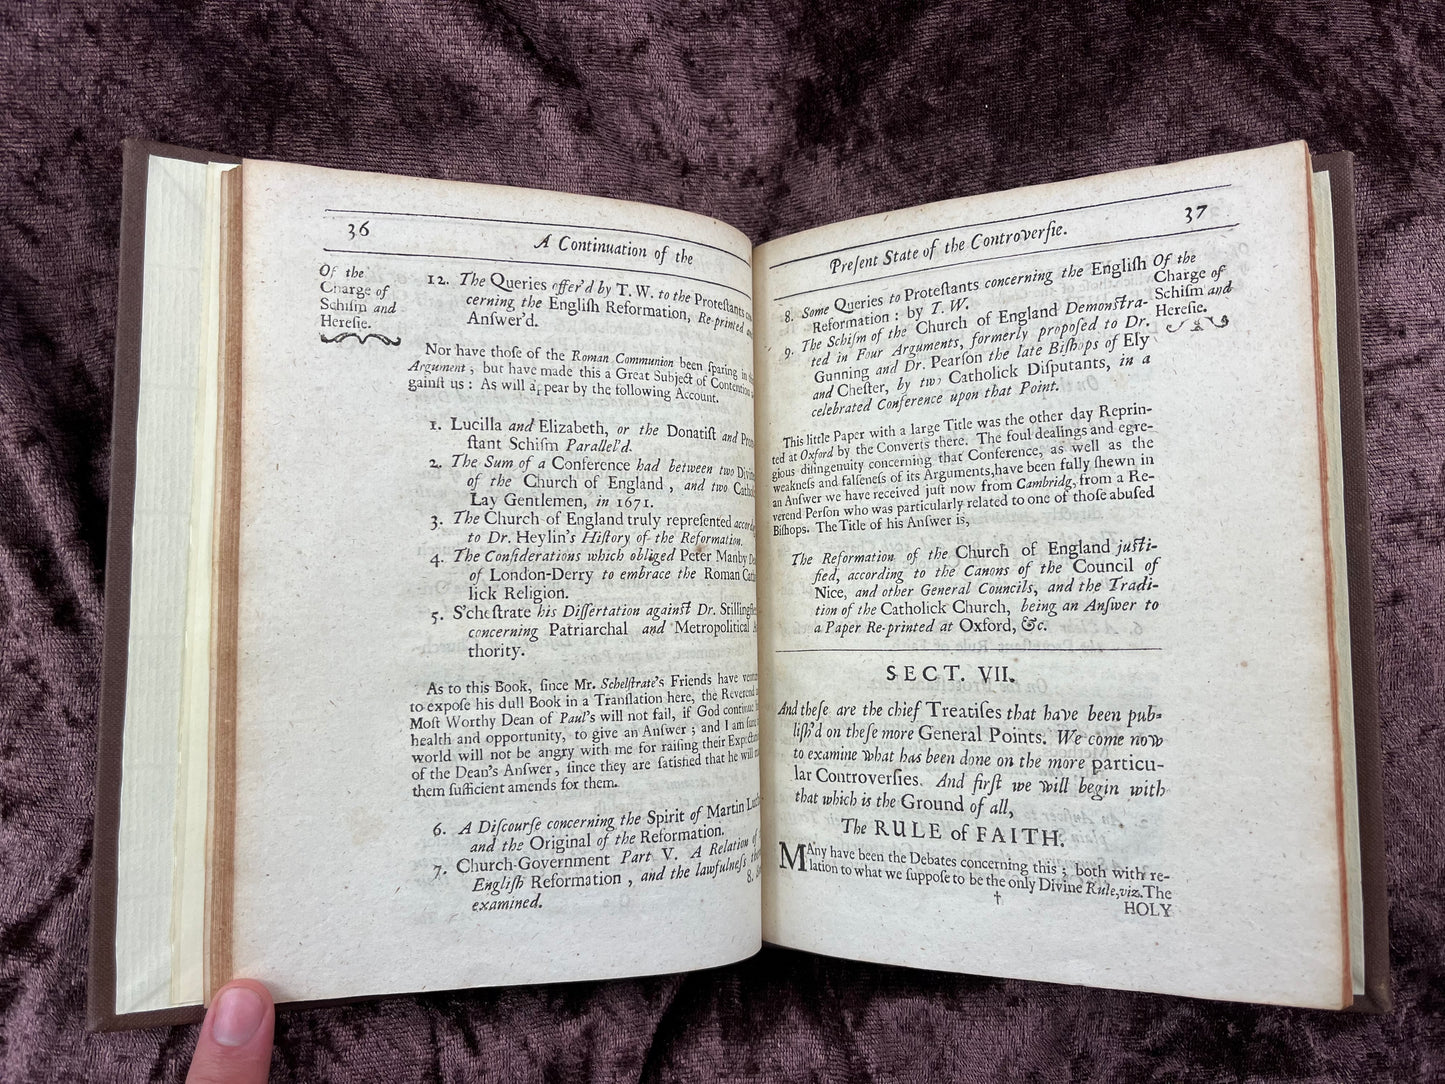 36
A Continuation of the
Of the
Charge of
Schiſm and
Hereſie.
12. The Queries offer'd by T. W. to the Proteſtants
cerning the Engliſh Reformation, Re-printed
Anſwer'd.
Nor have thoſe of the Roman Communion been ſparing in
Argument; but have made this a Great Subject of Contention
gainſt us: As will appear by the following Account.
1. Lucilla and Elizabeth, or the Donatiſt and
ſtant Schiſm Parallel'd.
2. The Sum of a Conference had between two
of the Church of England, and two
Lay Gentlemen, in 1671.
3. The Church of England truly repreſented
to Dr. Heylin's Hiſtory of the Reformation.
4. The Conſiderations which obliged Peter Manby
of London-Derry to embrace the Roman
lick Religion.
5. S'cheſtrate his Diſſertation againſt Dr.
concerning Patriarchal and Metropolitical
thority.
As to this Book, ſince Mr. Schelſtrate's Friends have
to expoſe his dull Book in a Tranſlation here, the Reverend
Moſt Worthy Dean of Paul's will not fail, if God continue
health and opportunity, to give an Anſwer; and I am
world will not be angry with me for raiſing their
of the Dean's Anſwer, ſince they are ſatisfied that he will
them ſufficient amends for them.
6. A Diſcourſe concerning the Spirit of Martin
and the Original of the Reformation.
7. Church-Government Part V. A Relation of
Engliſh Reformation, and the lawfulneſs
examined.
8.
Preſent State of the Controverſie.
37
Of the
Charge of
Schiſm and
Hereſie.
8. Some Queries to Proteſtants concerning the Engliſh
Reformation: by T. W.
9. The Schiſm of the Church of England Demonſtra-
ted in Four Arguments, formerly propoſed to Dr.
Gunning and Dr. Pearſon the late Biſhops of Ely
and Cheſter, by two Catholick Diſputants, in a
celebrated Conference upon that Point.
This little Paper with a large Title was the other day Reprin-
ted at Oxford by the Converts there. The foul dealings and egre-
gious diſingenuity concerning that Conference, as well as the
weakneſs and falſeneſs of its Arguments, have been fully ſhewn in
an Anſwer we have received juſt now from Cambridg, from a Re-
verend Perſon who was particularly related to one of thoſe abuſed
Biſhops. The Title of his Anſwer is,
The Reformation of the Church of England juſti-
fied, according to the Canons of the Council of
Nice, and other General Councils, and the Tradi-
tion of the Catholick Church, being an Anſwer to
a Paper Re-printed at Oxford, &c.
SECT. VII.
And theſe are the chief Treatiſes that have been pub-
liſh'd on theſe more General Points. We come now
to examine what has been done on the more particu-
lar Controverſies. And firſt we will begin with
that which is the Ground of all,
The RULE of FAITH.
MAny have been the Debates concerning this; both with re-
lation to what we ſuppoſe to be the only Divine Rule, viz. The
†
HOLY